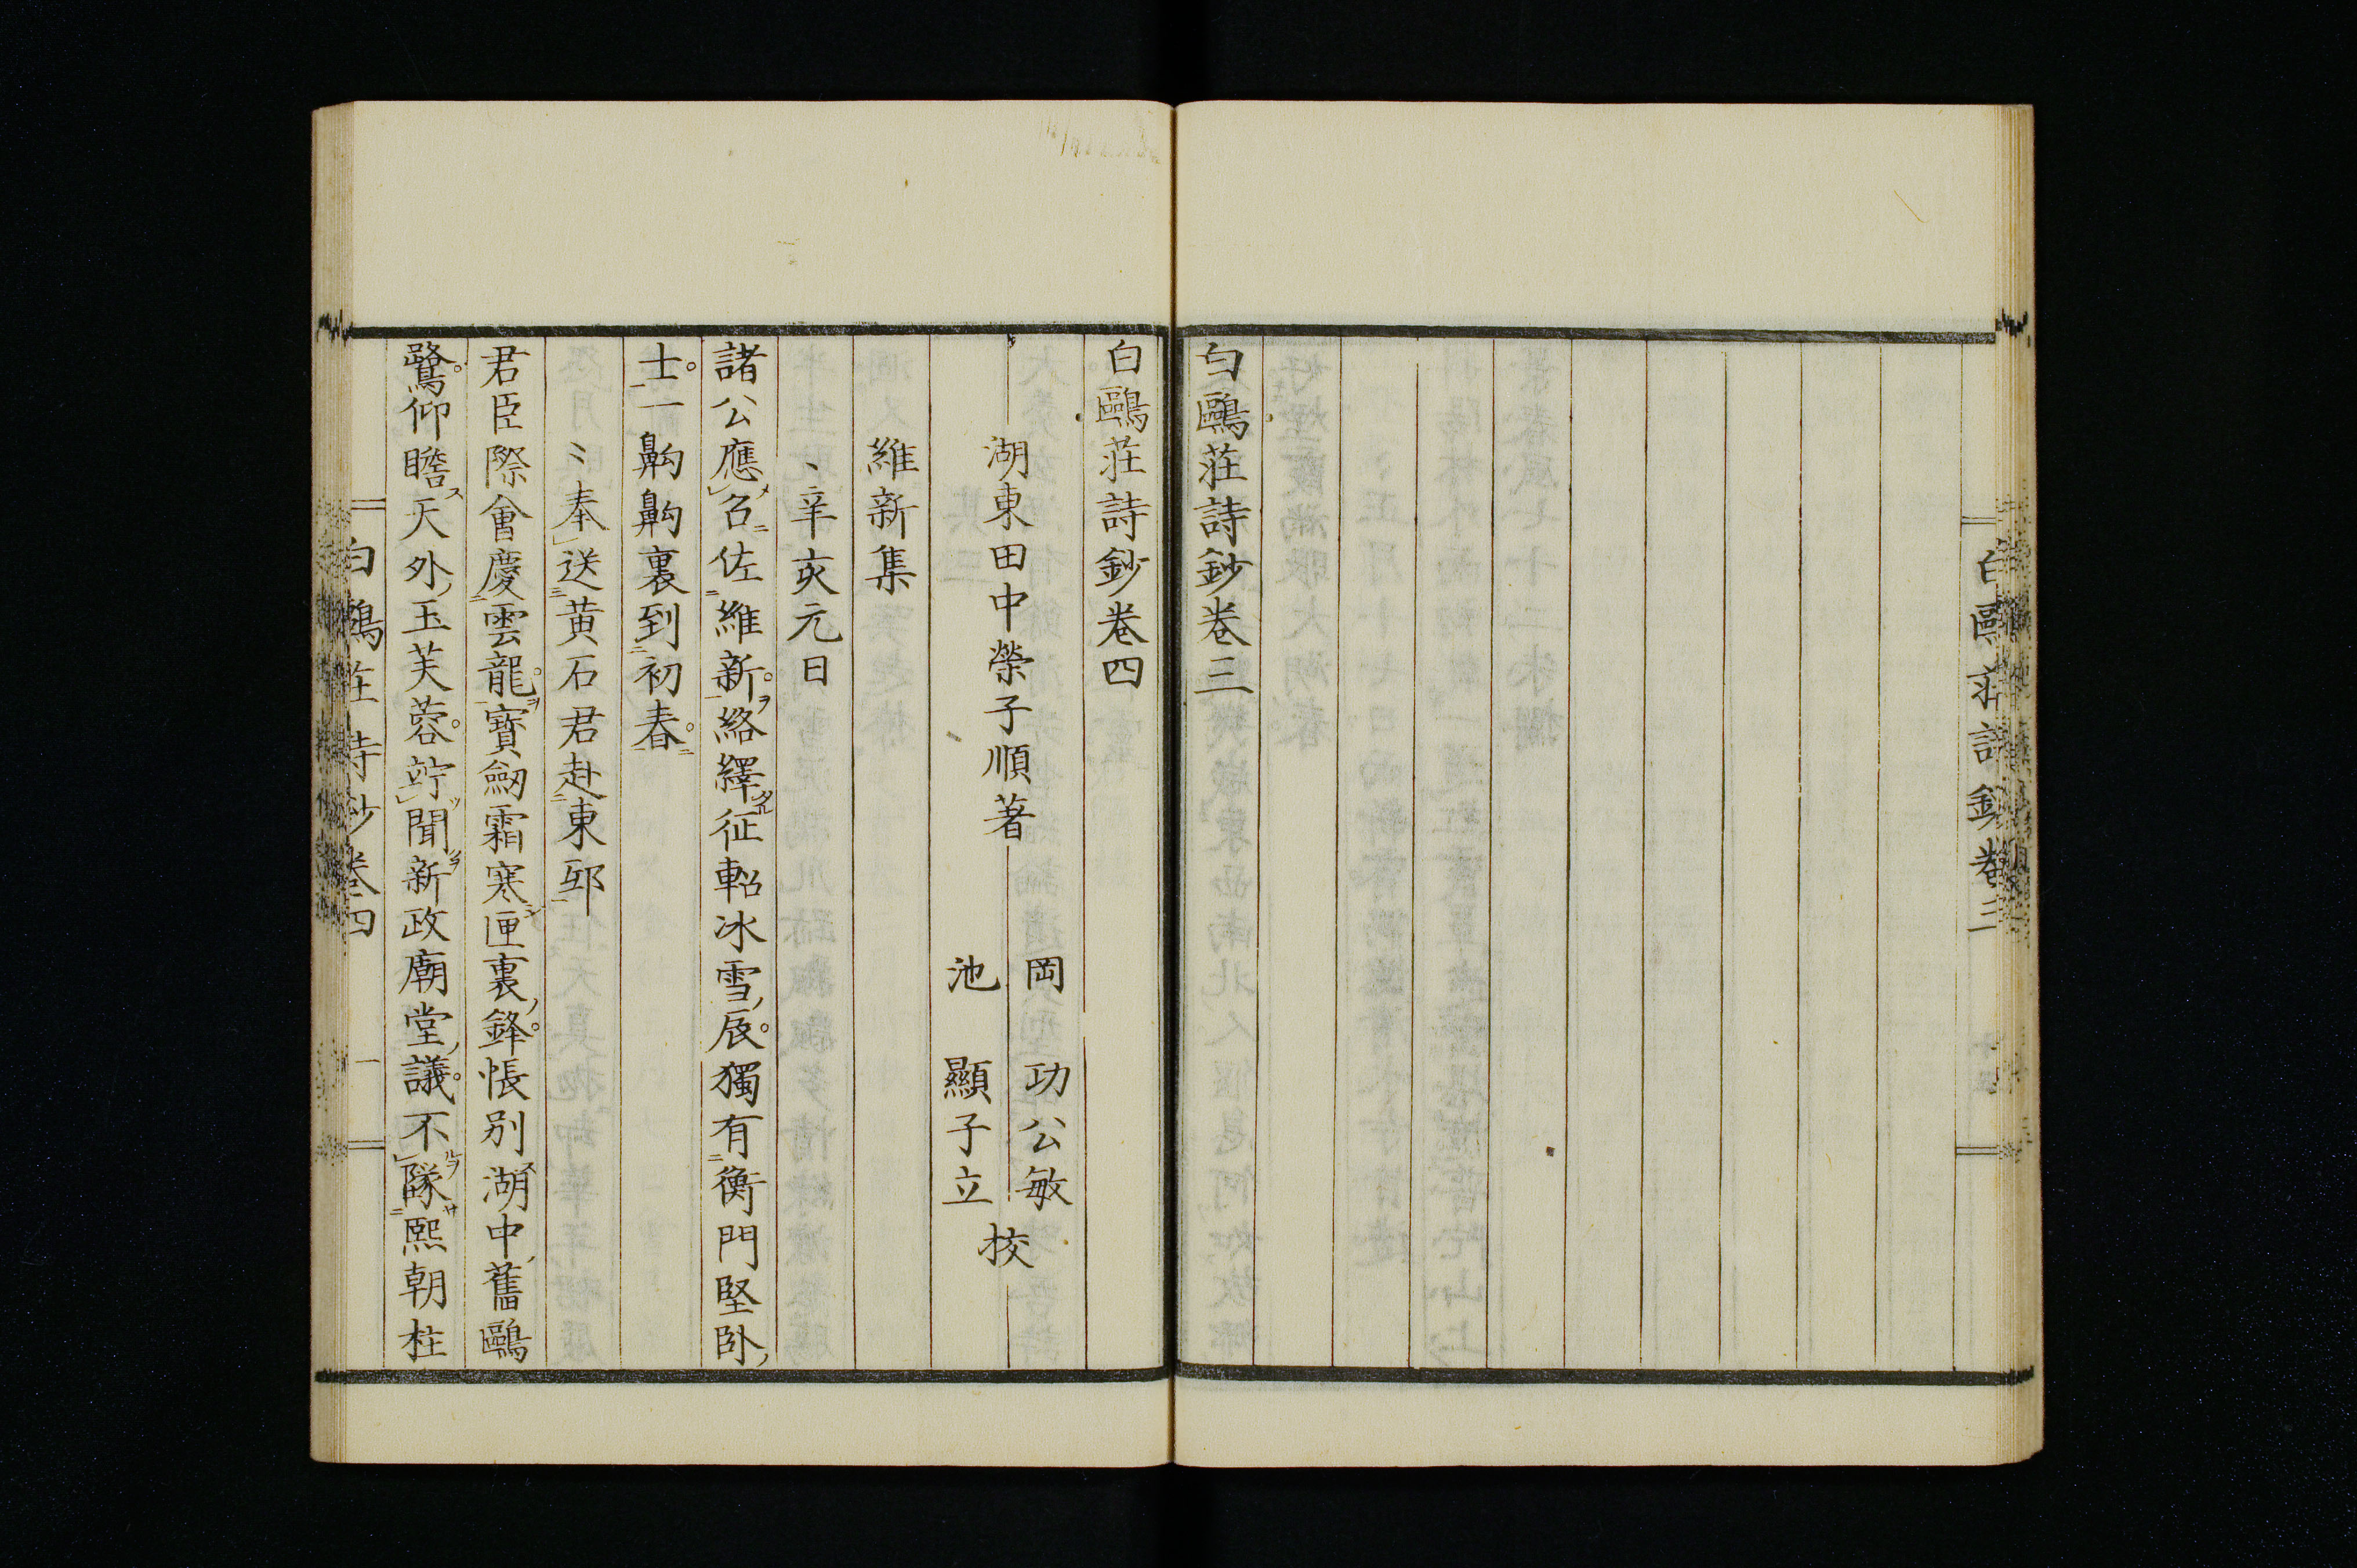 白鷗莊詩鈔卷三
白鷗莊詩鈔卷三
白鷗莊詩鈔卷四
湖東田中榮子順著
岡 功公敏
池 顯子立
校
維新集
辛亥元日
諸公應召佐維新絡繹征軺冰雪辰獨有衡門堅臥
士一齁齁裏到初春
奉送黃石君赴東邸
君臣際會慶雲龍寶劒霜寒匣裏鋒悵別湖中舊鷗
鷺仰瞻天外玉芙蓉竚聞新政廟堂議不隊熙朝柱
白鷗莊詩鈔卷四 一